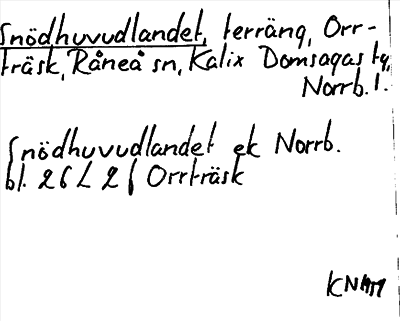 Snödhuvudlandet, terräng, Orr-
träsk, Råneå sn, Kalix Domsagas tg,
Norrb. l.
Snödhuvudlandet ek Norrb.
bl. 26 L 2 f Orrträsk